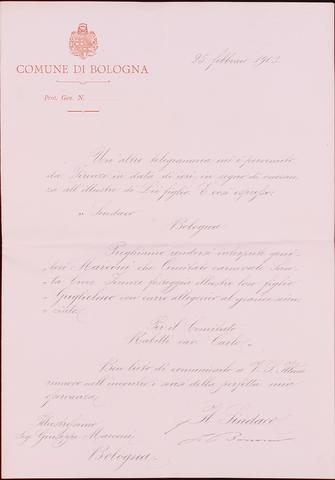 COMUNE DI BOLOGNA
Prot. Gen. N.
25 febbraio 1903.
Un altro telegramma mi è pervenuto
da Firenze in data di ieri in segno di onoran-
za all'illustre di Lei figlio. È così espresso:
" Sindaco
Bologna
" Preghiamo rendersi interprete geni-
" tori Marconi che Comitato carnevale San-
" ta Croce Firenze festeggia illustre loro figlio
" Guglielmo con carro allegorico al grande scien-
" ziato.
Per il Comitato
Rabitti cav. Carlo "
Ben lieto di comunicarlo a V. S. Illma
rinnovo nell'incontro i sensi della perfetta mia
osservanza.
Il Sindaco
Illustrissimo
Sig. Giuseppe Marconi
Bologna